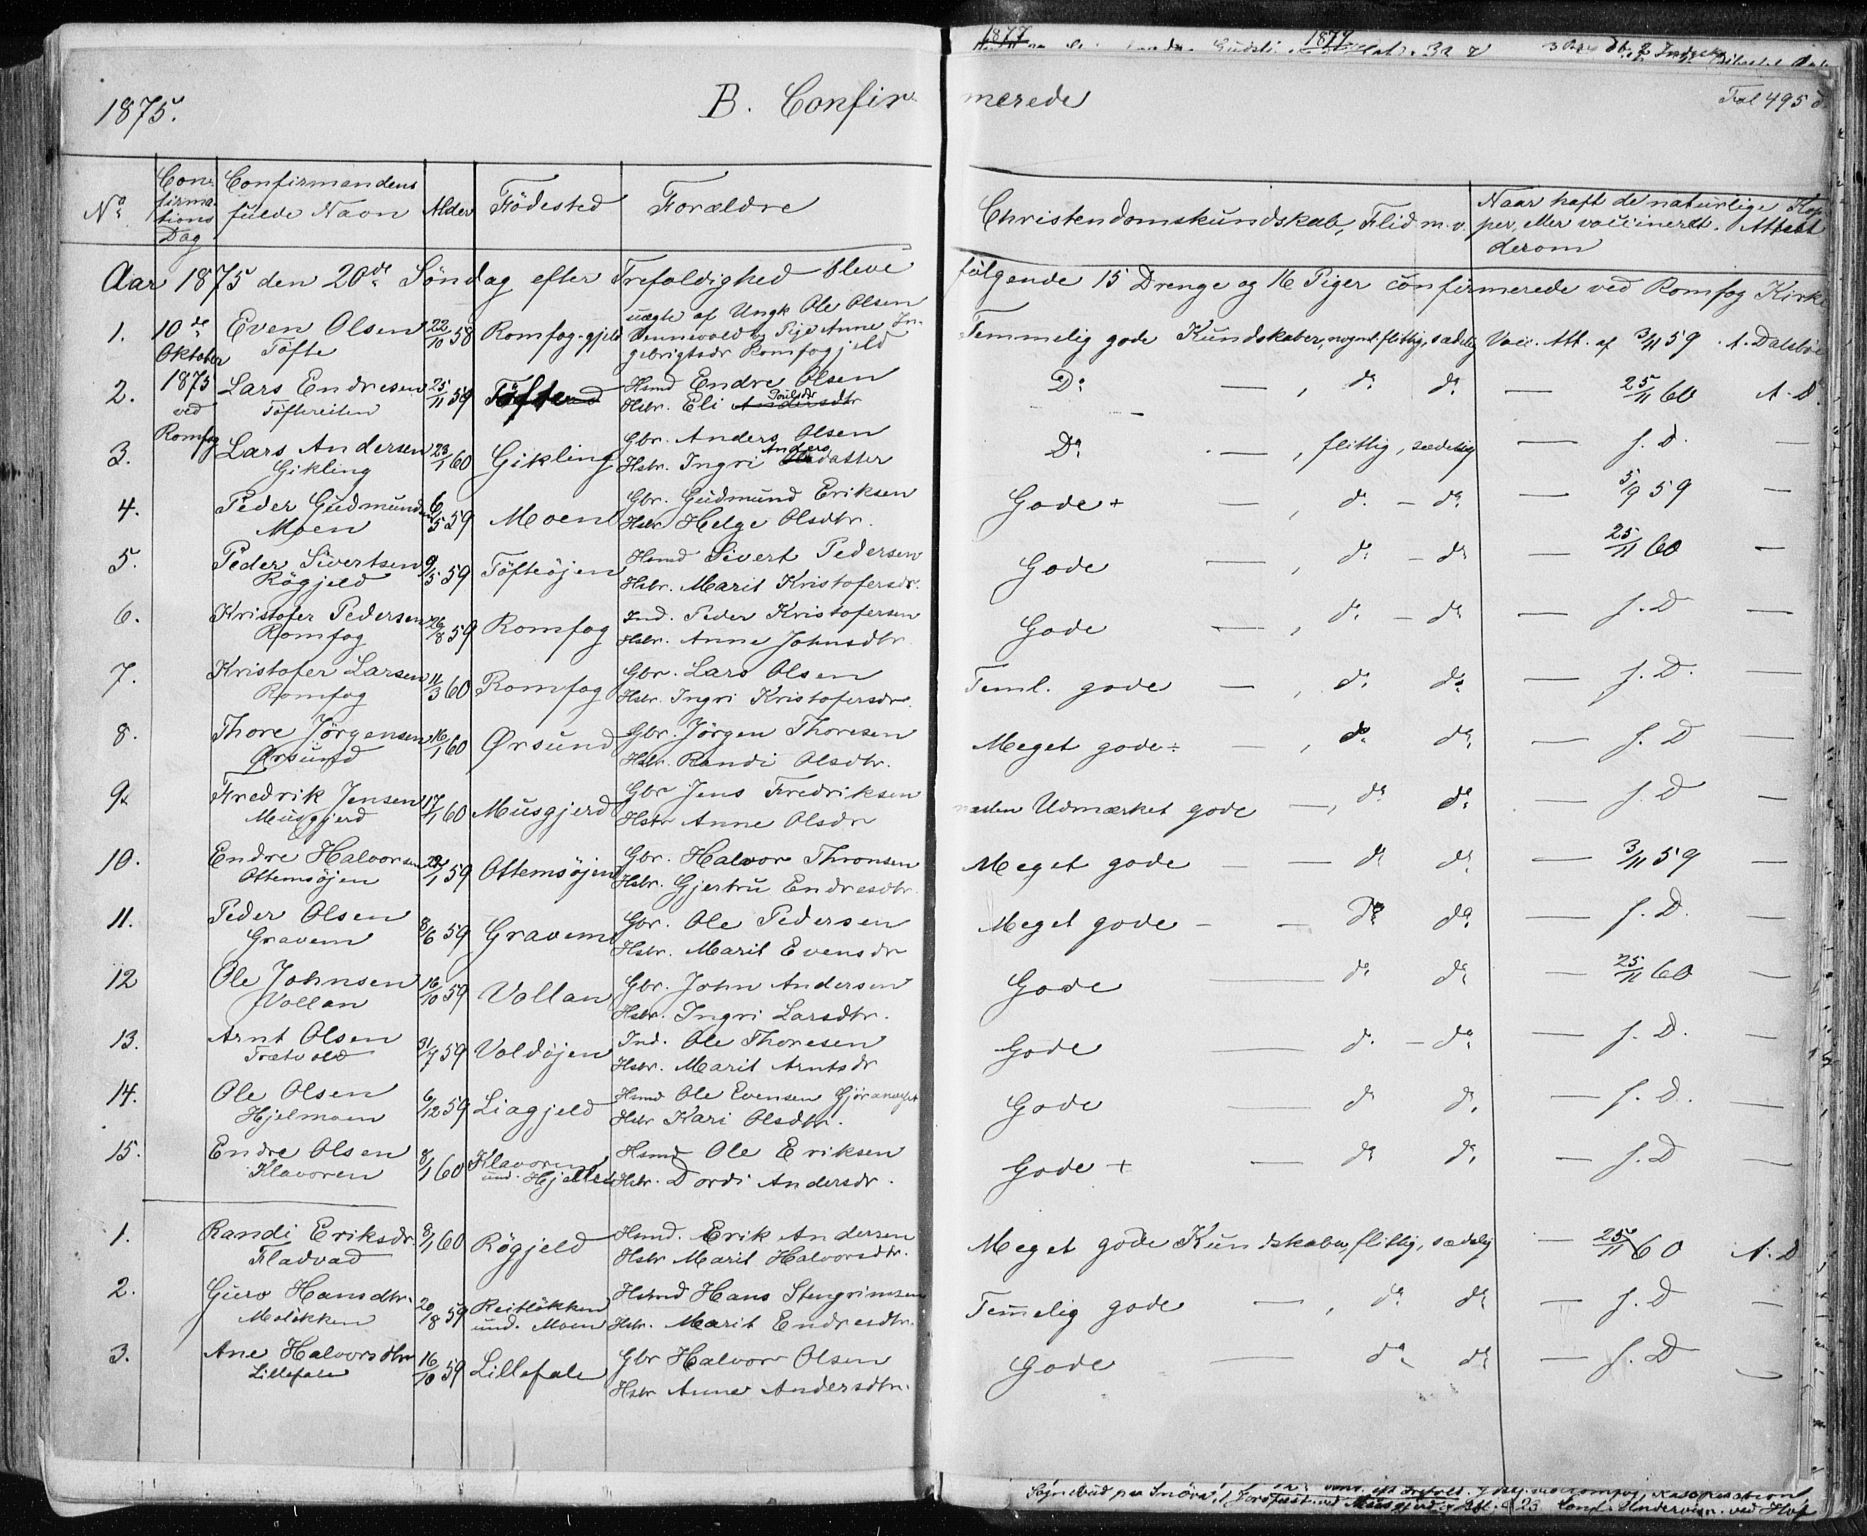 1875. B. Confirmerede Fol 495
No. Confirmations Dag Confirmandens fulde Navn Alder Födested Forældre Christendomskundskab, Flid m.v. Naar haft de naturlige Kopper, eller vaccineret. Attest derom
Aar 1875 den 20de Söndag efter Trefoldighed bleve følgende 15 Drenge og 16 Piger confirmerede ved Romfog Kirke
10de Oktober 1875 ved Romfog
1. Even Olsen Töfte 22/10 58 Romfog-gjeld uægte af Ungk Ole Olsen Pige Anne Ingebrigtsdr Romfogjeld Temmelig gode Kundskaber, flittig, sædelig Vacc. Att. af 3/11 59 A. Dahlöe
2. Lars Endresen Töftereiten 25/11 59 Töfte Hsmd Endre Olsen Hstr. Eli Andersdtr Poulsdr Do — , do do — 25/11 60 A. D.
3. Lars Andersen Gikling 23/1 60 Gikling Gbr. Anders Olsen Hstr. Ingri Andersdatter Do — , flittig, sædelig — f. D.
4. Peder Gudmundsen Moen 6/5 59 Moen Gbr. Gudmund Eriksen Hstr. Helge Olsdtr. Gode + — , do — do — 5/9 59 —
5. Peder Sivertsen Rögjeld 9/5 59 Töfteöjen Hsmd Sivert Pedersen Hstr. Marit Kristofersdr. Gode — , do — do — 25/11 60 —
6. Kristofer Pedersen Romfog 26/8 59 Romfog Ind. Peder Kristofersen Hstr. Anne Johnsdtr. Gode — , do — do — f. D —
7. Kristofer Larsen Romfog 11/3 60 Romfog Gbr. Lars Olsen Hstr. Ingri Kristofersdr. Teml. gode — , do do — f. D. —
8. Thore Jörgensen Ørsund 16/1 60 Ørsund Gbr. Jörgen Thoresen Hstr. Randi Olsdtr. Meget gode ÷ — , do do — f. D —
9. Fredrik Jensen Musgjerd 17/1 60 Musgjerd Gbr Jens Fredriksen Hstr Anne Olsdr næsten Udmærket gode — , do do — f. D —
10. Endre Halvorsen Ottemsöjen 1 59 Ottemsöjen Gbr. Halvor Thronsen Hstr. Gjertru Endresdtr. Meget gode — — do do — 3/11 59 —
11. Peder Olsen Gravem 8/6 59 Gravem Gbr. Ole Pedersen Hstr. Marit Evensdr Meget gode — — do do — f. D. —
12 Ole Johnsen Vollan 16/10 59 Vollan Gbr. John Andersen Hstr. Ingri Larsdtr. Gode — do do — 25/11 60 —
13. Arnt Olsen Trætvold 31/7 59 Voldöjen Ind. Ole Thoresen Hstr. Marit Arntsdr Gode — do — do — f. D. —
14. Ole Olsen Hjelmoen 6/12 59 Liagjeld Hsmd Ole Evensen Hstr Kari Olsdtr. Gode — do do — f. D. —
15. Endre Olsen Klavoren 8/1 60 Klavoren und. Hjellen Hsmd Ole Eriksen Hstr. Dordi Andersdr. Gode + — do do — f. D —
1. Randi Eriksdr. Fladvad 8/1 60 Rögjeld Hsmd. Erik Andersen Hstr Marit Halvorsdtr. Meget gode Kundskaber flittig, sædelig — 25/11 60 A. D
2. Guro Hansdtr. Molökken 20/8 59 Reitlökken und. Moen Hsmd Hans Stengrimsen Hstr. Marit Endresdtr. Temmelig gode — , do do — f. D —
3. Ane Halvorsdtr Lillefale 16/10 59 Lillefale Gbr Halvor Olsen Hstr Anne Andersdtr. Gode — do do — f. D —